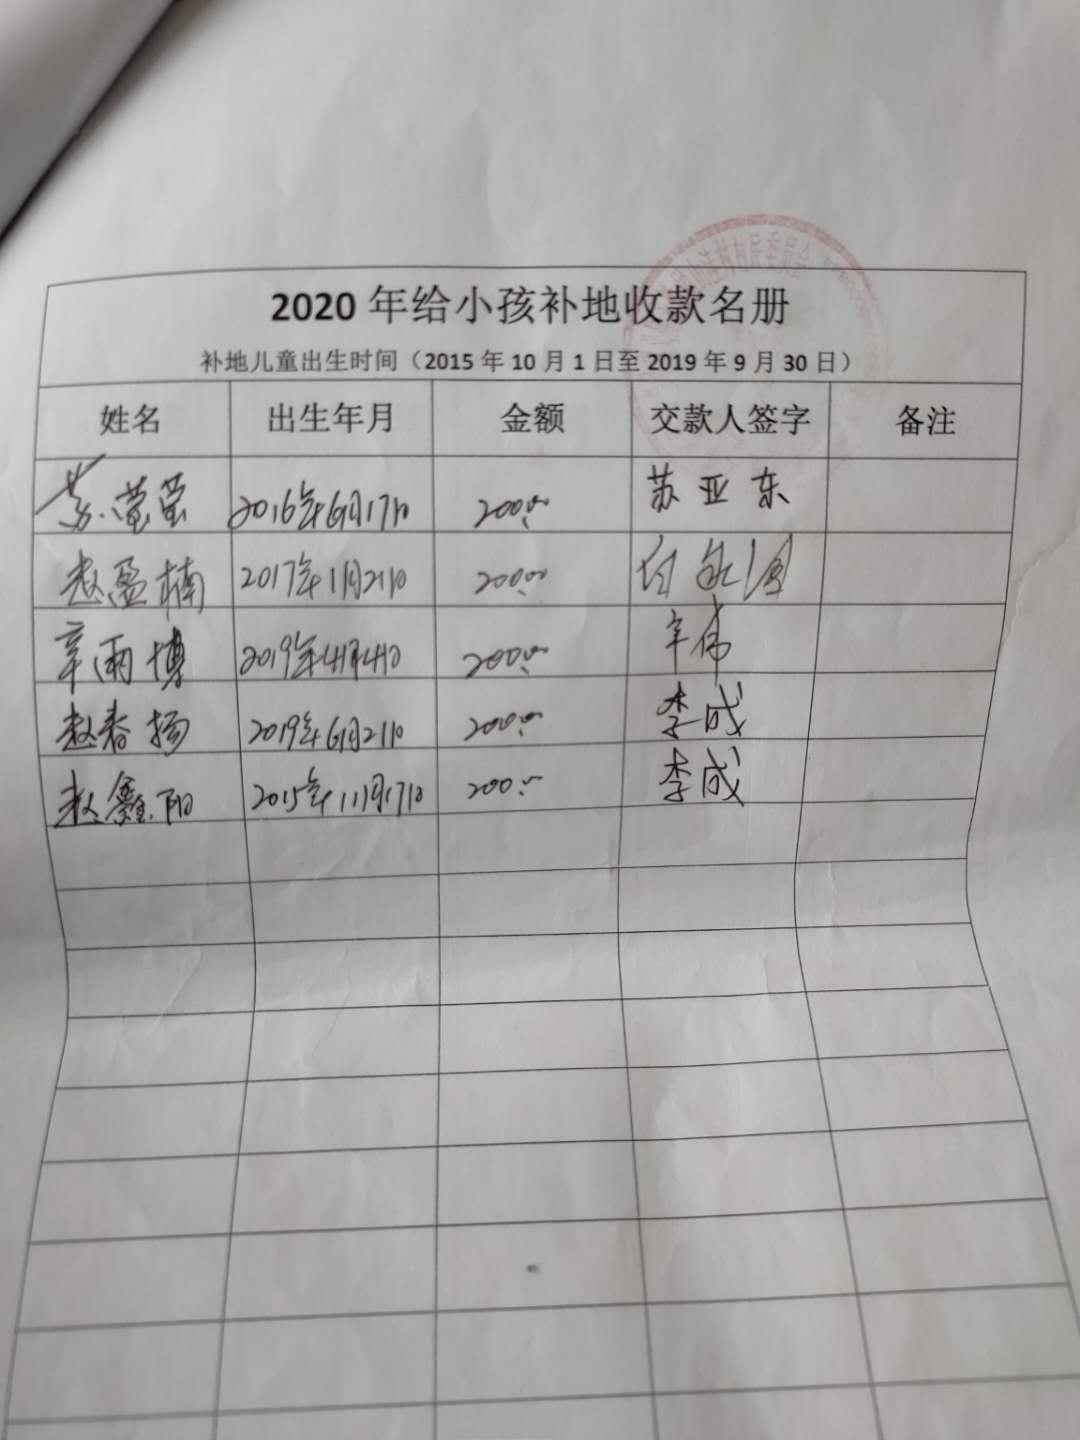 村村民委员会
2020年给小孩补地收款名册
补地儿童出生时间（2015年10月1日至2019年9月30日）
姓名 出生年月 金额 交款人签字 备注
苏莹莹 2016年6月17日 200.00 苏亚东
赵盈楠 2017年1月21日 200.00
辛雨博 2019年4月4日 200.00 辛伟
赵春扬 2019年6月21日 200.00 李成
赵鑫阳 2015年11月17日 200.00 李成